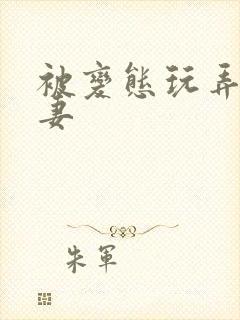 被變態玩弄
妻
朱軍